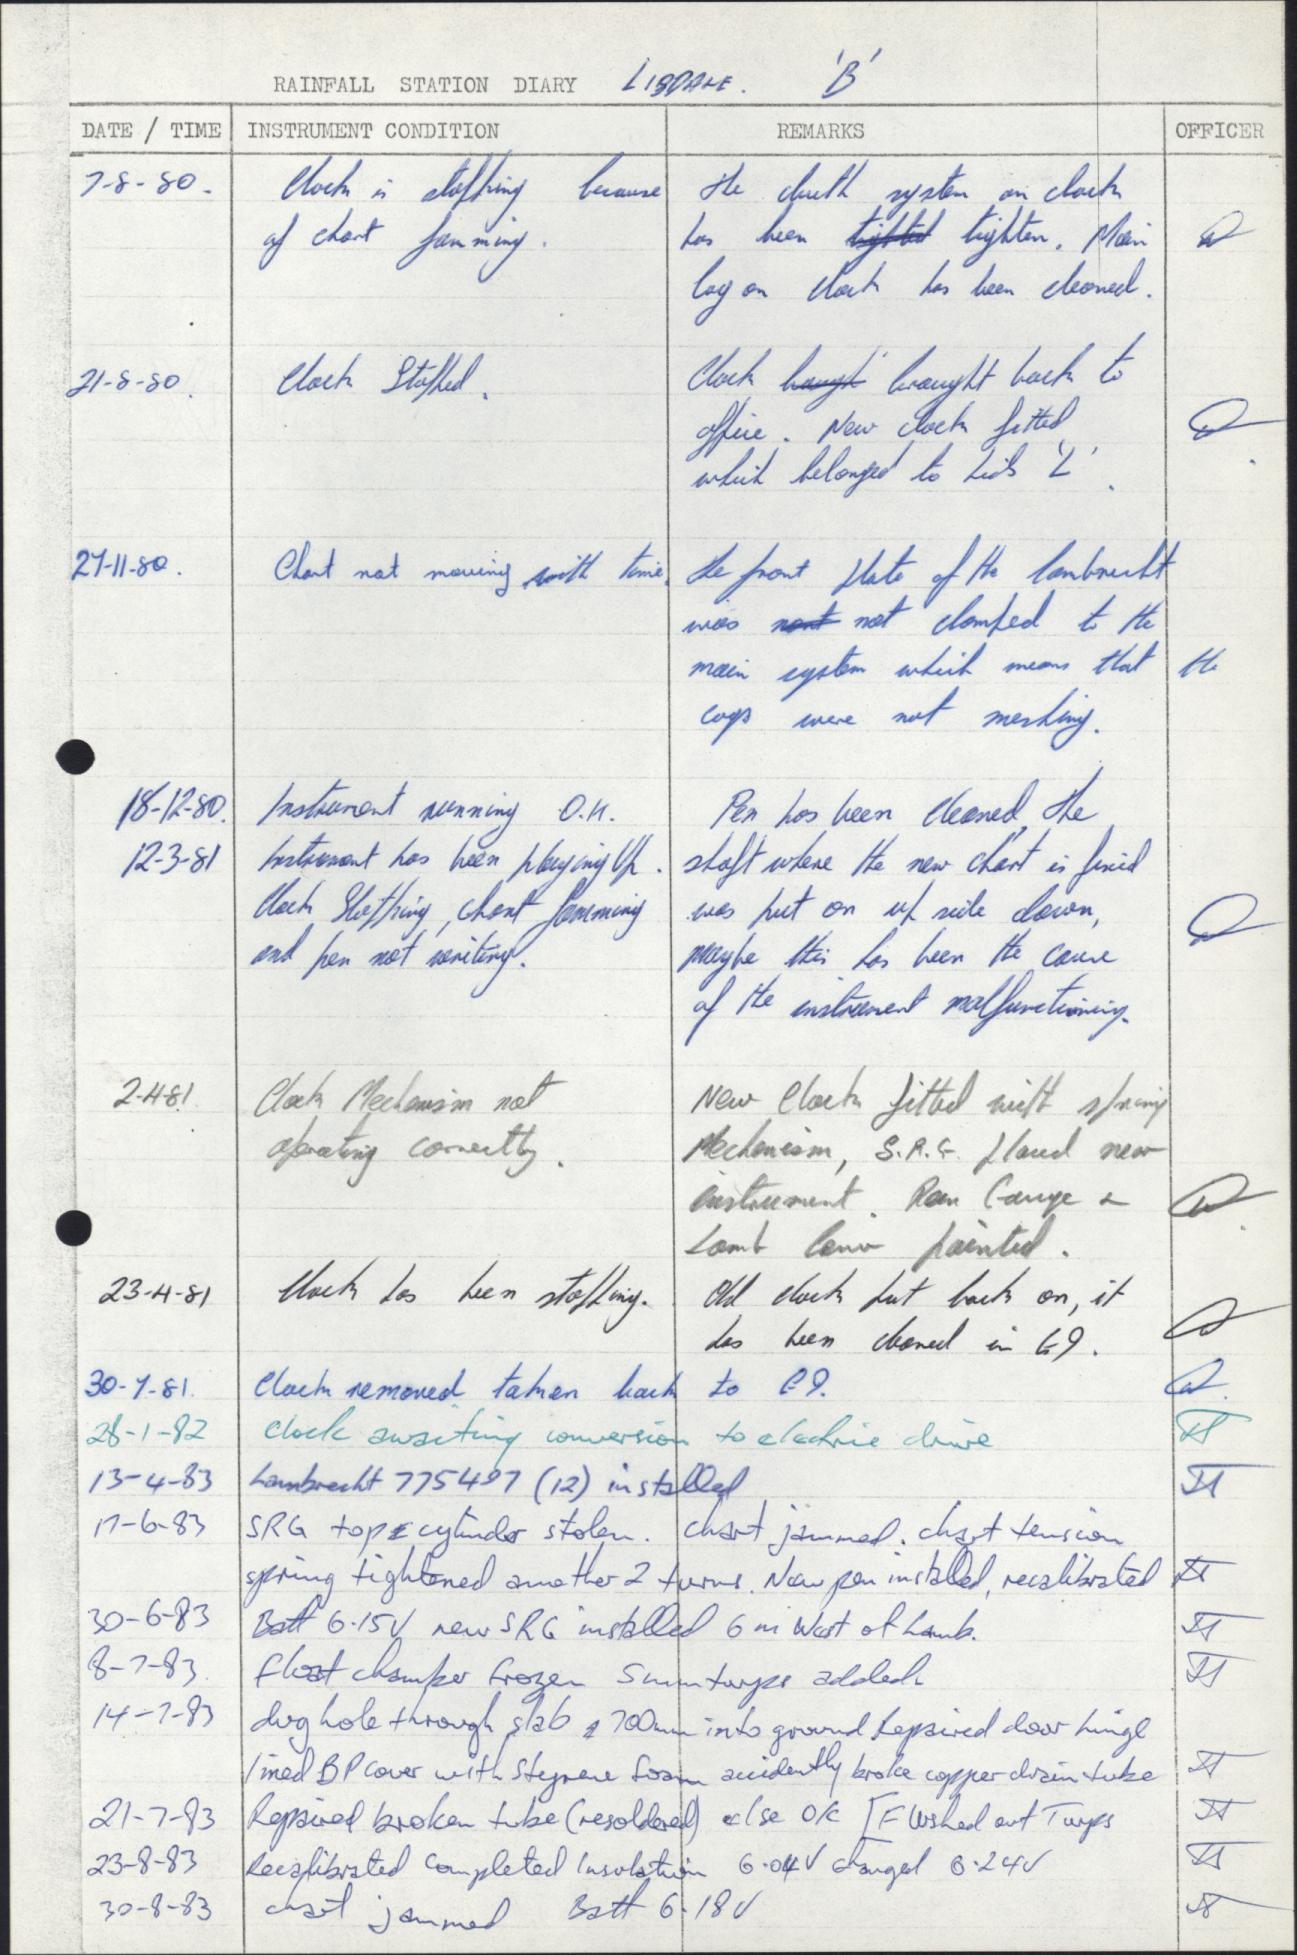 RAINFALL STATION DIARY LISDALE. 'B'
DATE / TIME INSTRUMENT CONDITION REMARKS OFFICER
7-8-80. Clock is stopping because The clutch system on clock
of chart jamming. has been tighted tighten. Main
log on clock has been cleaned.
21-8-80. Clock Stopped. Clock brough brought back to
office. New clock fitted
which belonged to Lids 'L'.
27-11-80. Chart not moving with time. The front plate of the Lambrecht
was not clamped to the
main system which means that
cogs were not meshing.
18-12-80. Instrument running O.K. Pen has been cleaned, the
12-3-81 Instrument has been playing Up. shaft where the new chart is fixed
Clock Stopping, chart jamming was put on up side down,
and pen not writing. maybe this has been the cause
of the instrument malfunctioning.
2-4-81. Clock Mechanism not New Clock fitted with spring
operating correctly. Mechanism, S.R.G. placed near
instrument. Rain Gauge &
Lamb Cover painted.
23-4-81 Clock has been stopping. Old clock put back on, it
has been cleaned in
30-7-81. Clock removed taken back to
28-1-82 Clock awaiting conversion to electric drive
13-4-83 Lambrecht 775497 (12) installed
17-6-83 SRG top & cylinder stolen. Chart jammed. Chart tension
spring tightened another 2 turns. New pen installed, recalibrated
30-6-83 Batt 6.15V new SRG installed 6 m West of Lamb.
8-7-83. Float chamber frozen turps added.
14-7-83 dug hole through slab & 700mm into ground Repaired door hinge
lined BP cover with Styrene foam accidently broke copper drain tube
21-7-83 Repaired broken tube (resoldered) else OK [Flushed out Turps
23-8-83 Recalibrated completed Insulation 6.04V changed 6.24V
30-8-83 chart jammed Batt 6.18V